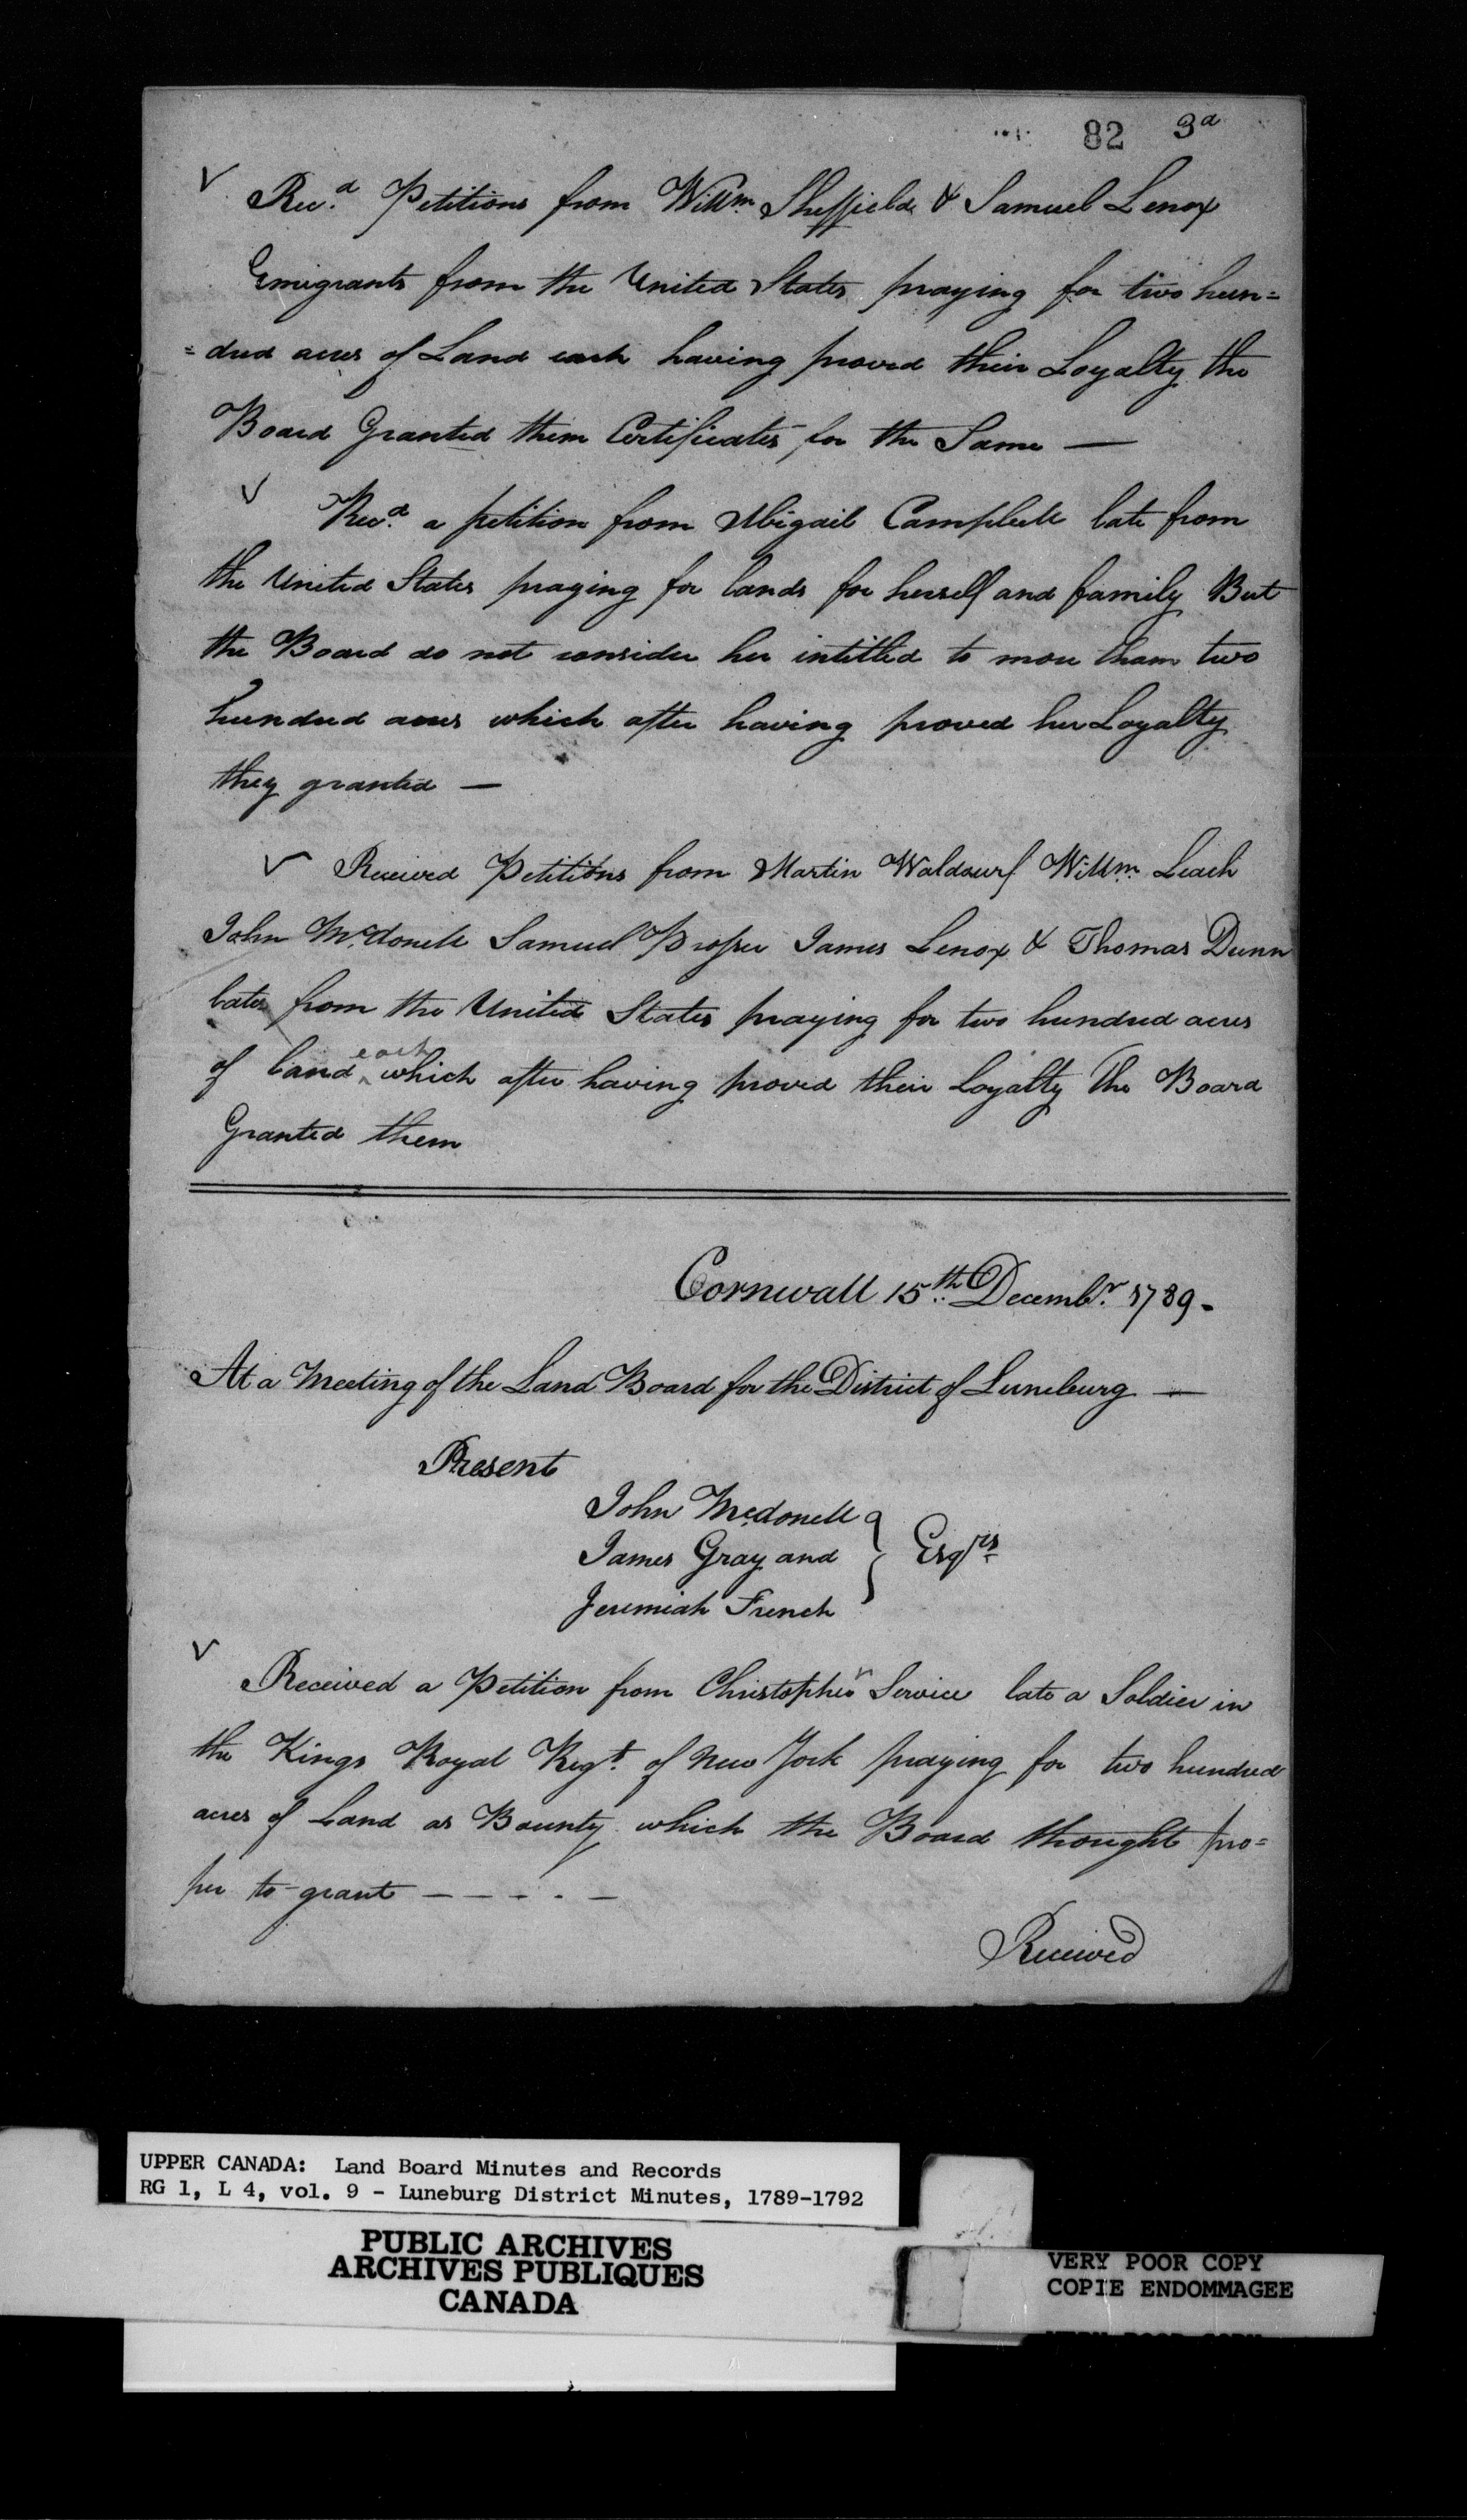 82 3d
√ Recd. Petitions from Willm. Sheffield & Samuel Lenox
Emigrants from the United States praying for two hun=
=dred acres of Land each having proved their Loyalty the
Board Granted them Certificates for the Same —
√ Recd. a petition from Abigail Campbell late from
the United States praying for lands for herself and family But
the Board do not consider her intitled to more than two
hundred acres which after having proved her Loyalty
they granted —
√ Received Petitions from Martin Waldourf Willm. Leach
John Mcdonell Samuel Proper James Lenox & Thomas Dunn
late from the United States praying for two hundred acres
of land ^each which after having proved their Loyalty The Board
Granted them
Cornwall 15th. Decembr. 1789 -
At a Meeting of the Land Board for the District of Luneburg —
Present
John Mcdonell
James Gray and } Esqrs
Jeremiah French
√ Received a Petition from Christopher Service late a Soldier in
the Kings Royal Regt. of New York praying for two hundred
acres of Land as Bounty which the Board thought pro=
per to grant — — - - —
Received
UPPER CANADA: Land Board Minutes and Records
RG 1, L 4, vol. 9 - Luneburg District Minutes, 1789-1792
PUBLIC ARCHIVES
ARCHIVES PUBLIQUES
CANADA
VERY POOR COPY
COPIE ENDOMMAGEE
VERY POOR COPY